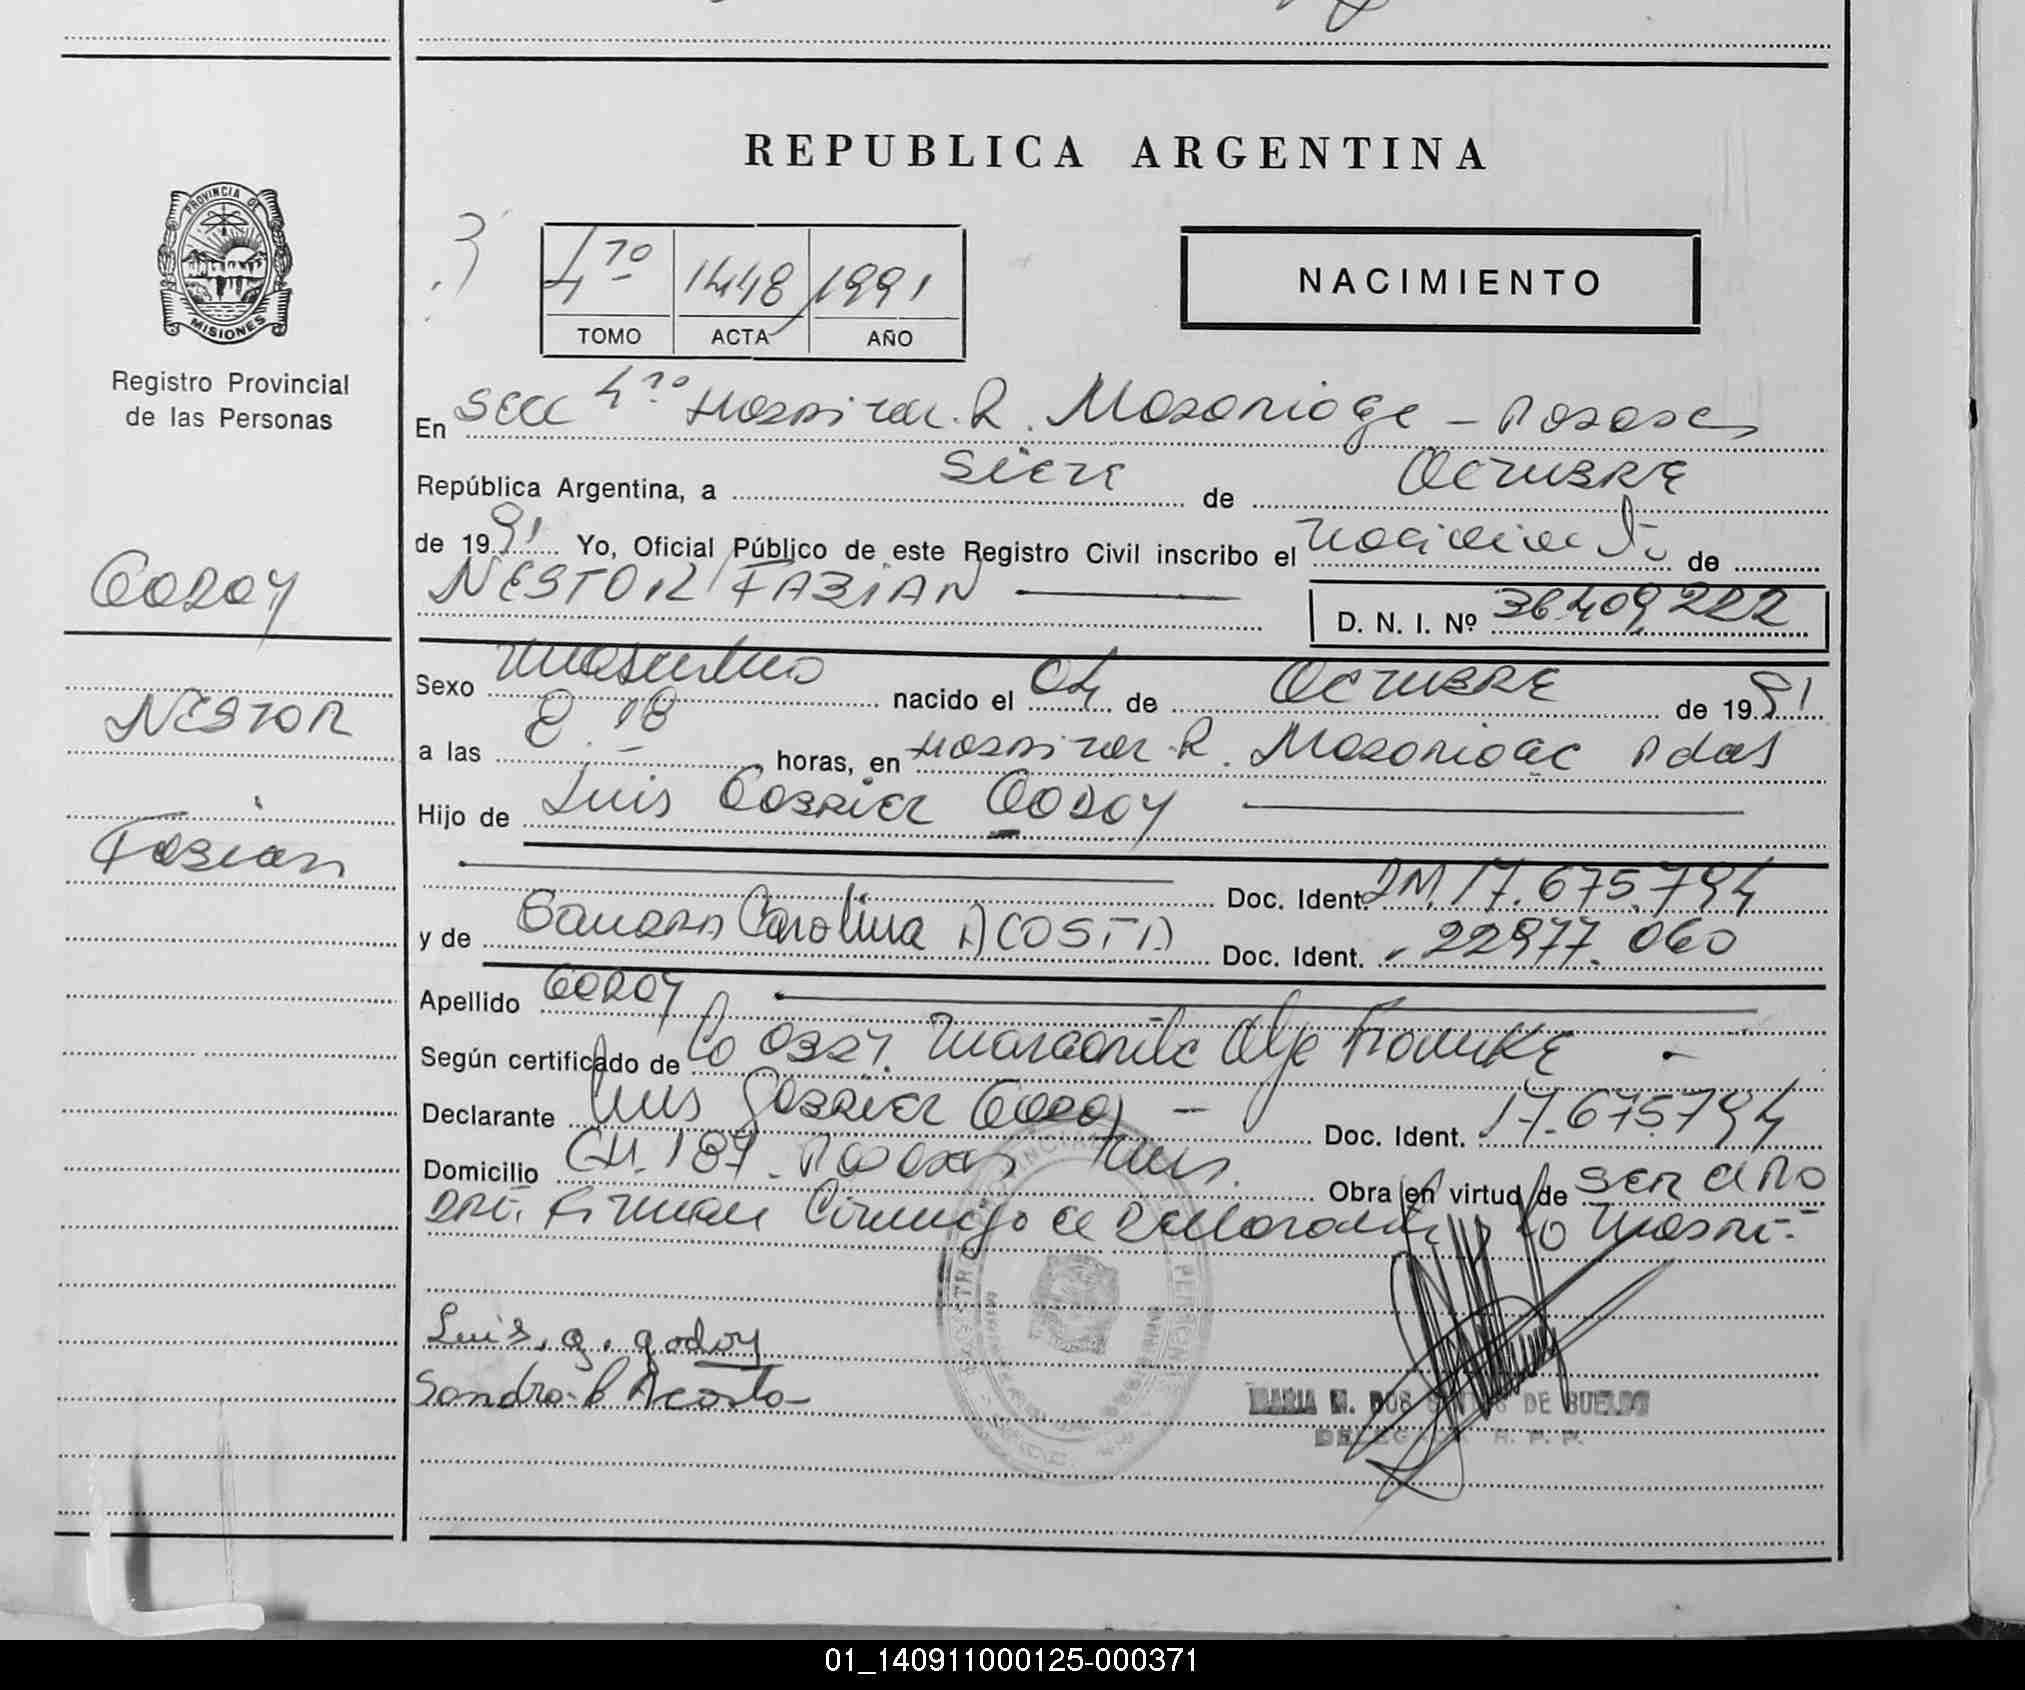 REPUBLICA ARGENTINA
PROVINCIA DE
MISIONES
Registro Provincial
de las Personas
3
4to 1448 1991
TOMO ACTA AÑO
NACIMIENTO
En Secc 4to Hospital R. Madariaga - Posadas
República Argentina, a Siete de Octubre
de 1991 Yo, Oficial Público de este Registro Civil inscribo el nacimiento de
NESTOR FABIAN
D. N. I. Nº 36.409.222
GODOY
NESTOR
Fabian
Sexo masculino nacido el 04 de Octubre de 1991
a las 8.18 horas, en Hospital R. Madariaga Pdas
Hijo de Luis Gabriel GODOY
Doc. Ident. DM. 17.675.794
y de Sandra Carolina ACOSTA Doc. Ident. 22977.060
Apellido GODOY
Según certificado de la Obst. Margarita Olga
Declarante Luis Gabriel Godoy - Doc. Ident. 17.675794
Domicilio CH. 187. Posadas Mnes. Obra en virtud de ser el Pa
dre. Firman conmigo el declarante y la madre.-
Luis. g. godoy
Sandra C Acosta
MARIA DOS DE
DELEGADA R. P. P.
01_140911000125-000371